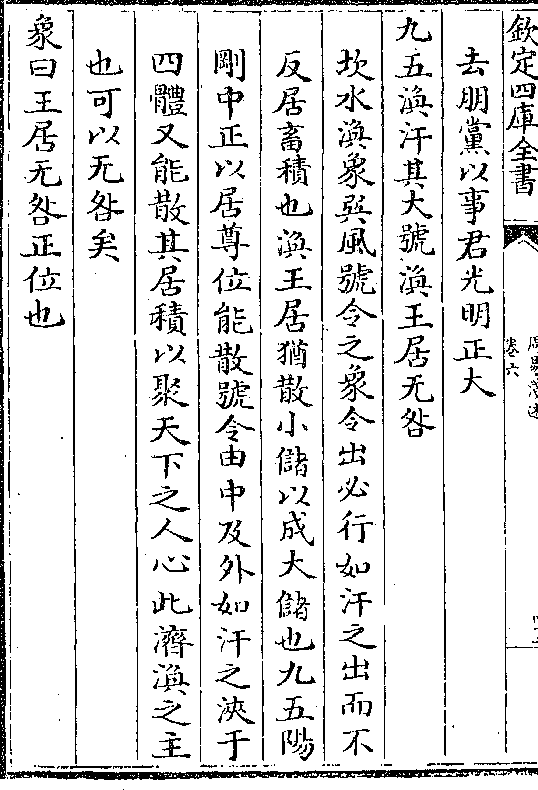 欽定四庫全書
卷六
去朋黨以事君光明正大
九五渙汗其大號渙王居无咎
坎水渙象巽風號令之象令出必行如汗之出而不
反居畜積也渙王居猶散小儲以成大儲也九五陽
剛中正以居尊位能散號令由中及外如汗之浹于
四體又能散其居積以聚天下之人心此濟渙之主
也可以无咎矣
象曰王居无咎正位也